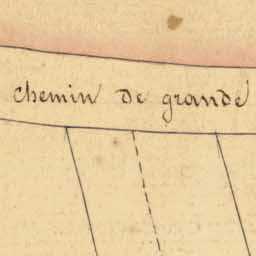 chemin de grande